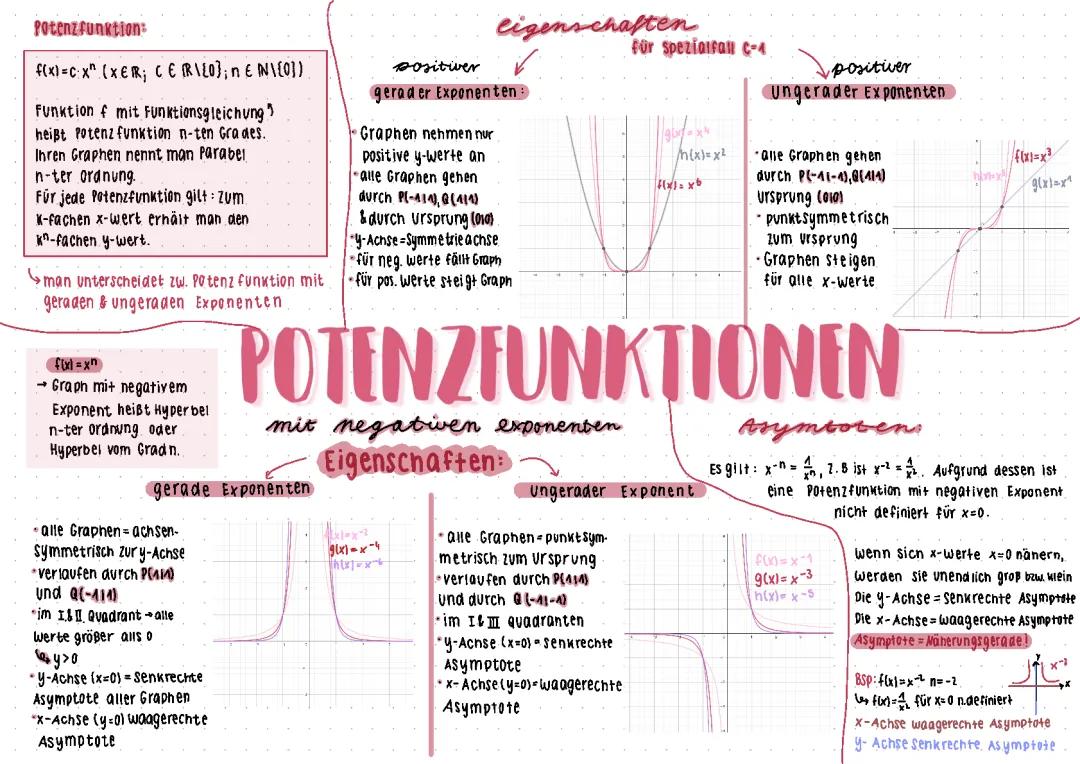 Potenzfunktion:
f(x)=c·xⁿ (x∈ℝ; c∈ℝ\{0}; n∈ℕ\{0})
Funktion f mit Funktionsgleichung
heißt Potenzfunktion n-ten Grades.
Ihren Graphen nennt man Parabel
n-ter Ordnung.
Für jede Potenzfunktion gilt: Zum
k-fachen x-Wert erhält man den
kⁿ-fachen y-Wert.
man unterscheidet zw. Potenzfunktion mit
geraden & ungeraden Exponenten
Eigenschaften
für Spezialfall C=1
positiver
gerader Exponenten:
• Graphen nehmen nur
positive y-Werte an
• alle Graphen gehen
durch P(-1|1), Q(1|1)
& durch Ursprung (0|0)
• y-Achse = Symmetrieachse
• für neg. Werte fällt Graph
• für pos. Werte steigt Graph
g(x) = x⁴
h(x) = x²
f(x) = x⁶
positiver
Ungerader Exponenten
• alle Graphen gehen
durch P(-1|-1), Q(1|1)
Ursprung (0|0)
• punktsymmetrisch
zum Ursprung
• Graphen steigen
für alle x-Werte
f(x)=x³
g(x)=x¹
POTENZFUNKTIONEN
f(x)=xⁿ
→ Graph mit negativem
Exponent heißt Hyperbel
n-ter Ordnung oder
Hyperbel vom Grad n.
mit negativen exponenten
Eigenschaften:
gerade Exponenten
• alle Graphen = achsen-
symmetrisch zur y-Achse
• verlaufen durch P(1|1)
und Q(-1|1)
• im I & II Quadrant → alle
Werte größer als 0
↳ y>0
• y-Achse (x=0) = Senkrechte
Asymptote aller Graphen
• x-Achse (y=0) waagerechte
Asymptote
f(x)=x⁻²
g(x)=x⁻⁴
h(x)=x⁻⁶
Ungerader Exponent
• alle Graphen = punktsym-
metrisch zum Ursprung
• verlaufen durch P(1|1)
und durch Q(-1|-1)
• im I & III Quadranten
• y-Achse (x=0) = Senkrechte
Asymptote
• x-Achse (y=0) = waagerechte
Asymptote
f(x)= x⁻¹
g(x)= x⁻³
h(x)= x⁻⁵
Asymtoten:
Es gilt: x⁻ⁿ = 1/xⁿ, z.B ist x⁻² = 1/x². Aufgrund dessen ist
eine Potenzfunktion mit negativen Exponent
nicht definiert für x=0.
Wenn sich x-Werte x=0 nähern,
werden sie unendlich groß bzw. klein
Die y-Achse = Senkrechte Asymptote
Die x-Achse = Waagerechte Asymptote
Asymptote = Näherungsgerade!
BSP: f(x)=x⁻² n=-2
↳ f(x)=1/x² für x=0 n.definiert
x-Achse waagerechte Asymptote
y-Achse Senkrechte Asymptote
y
x